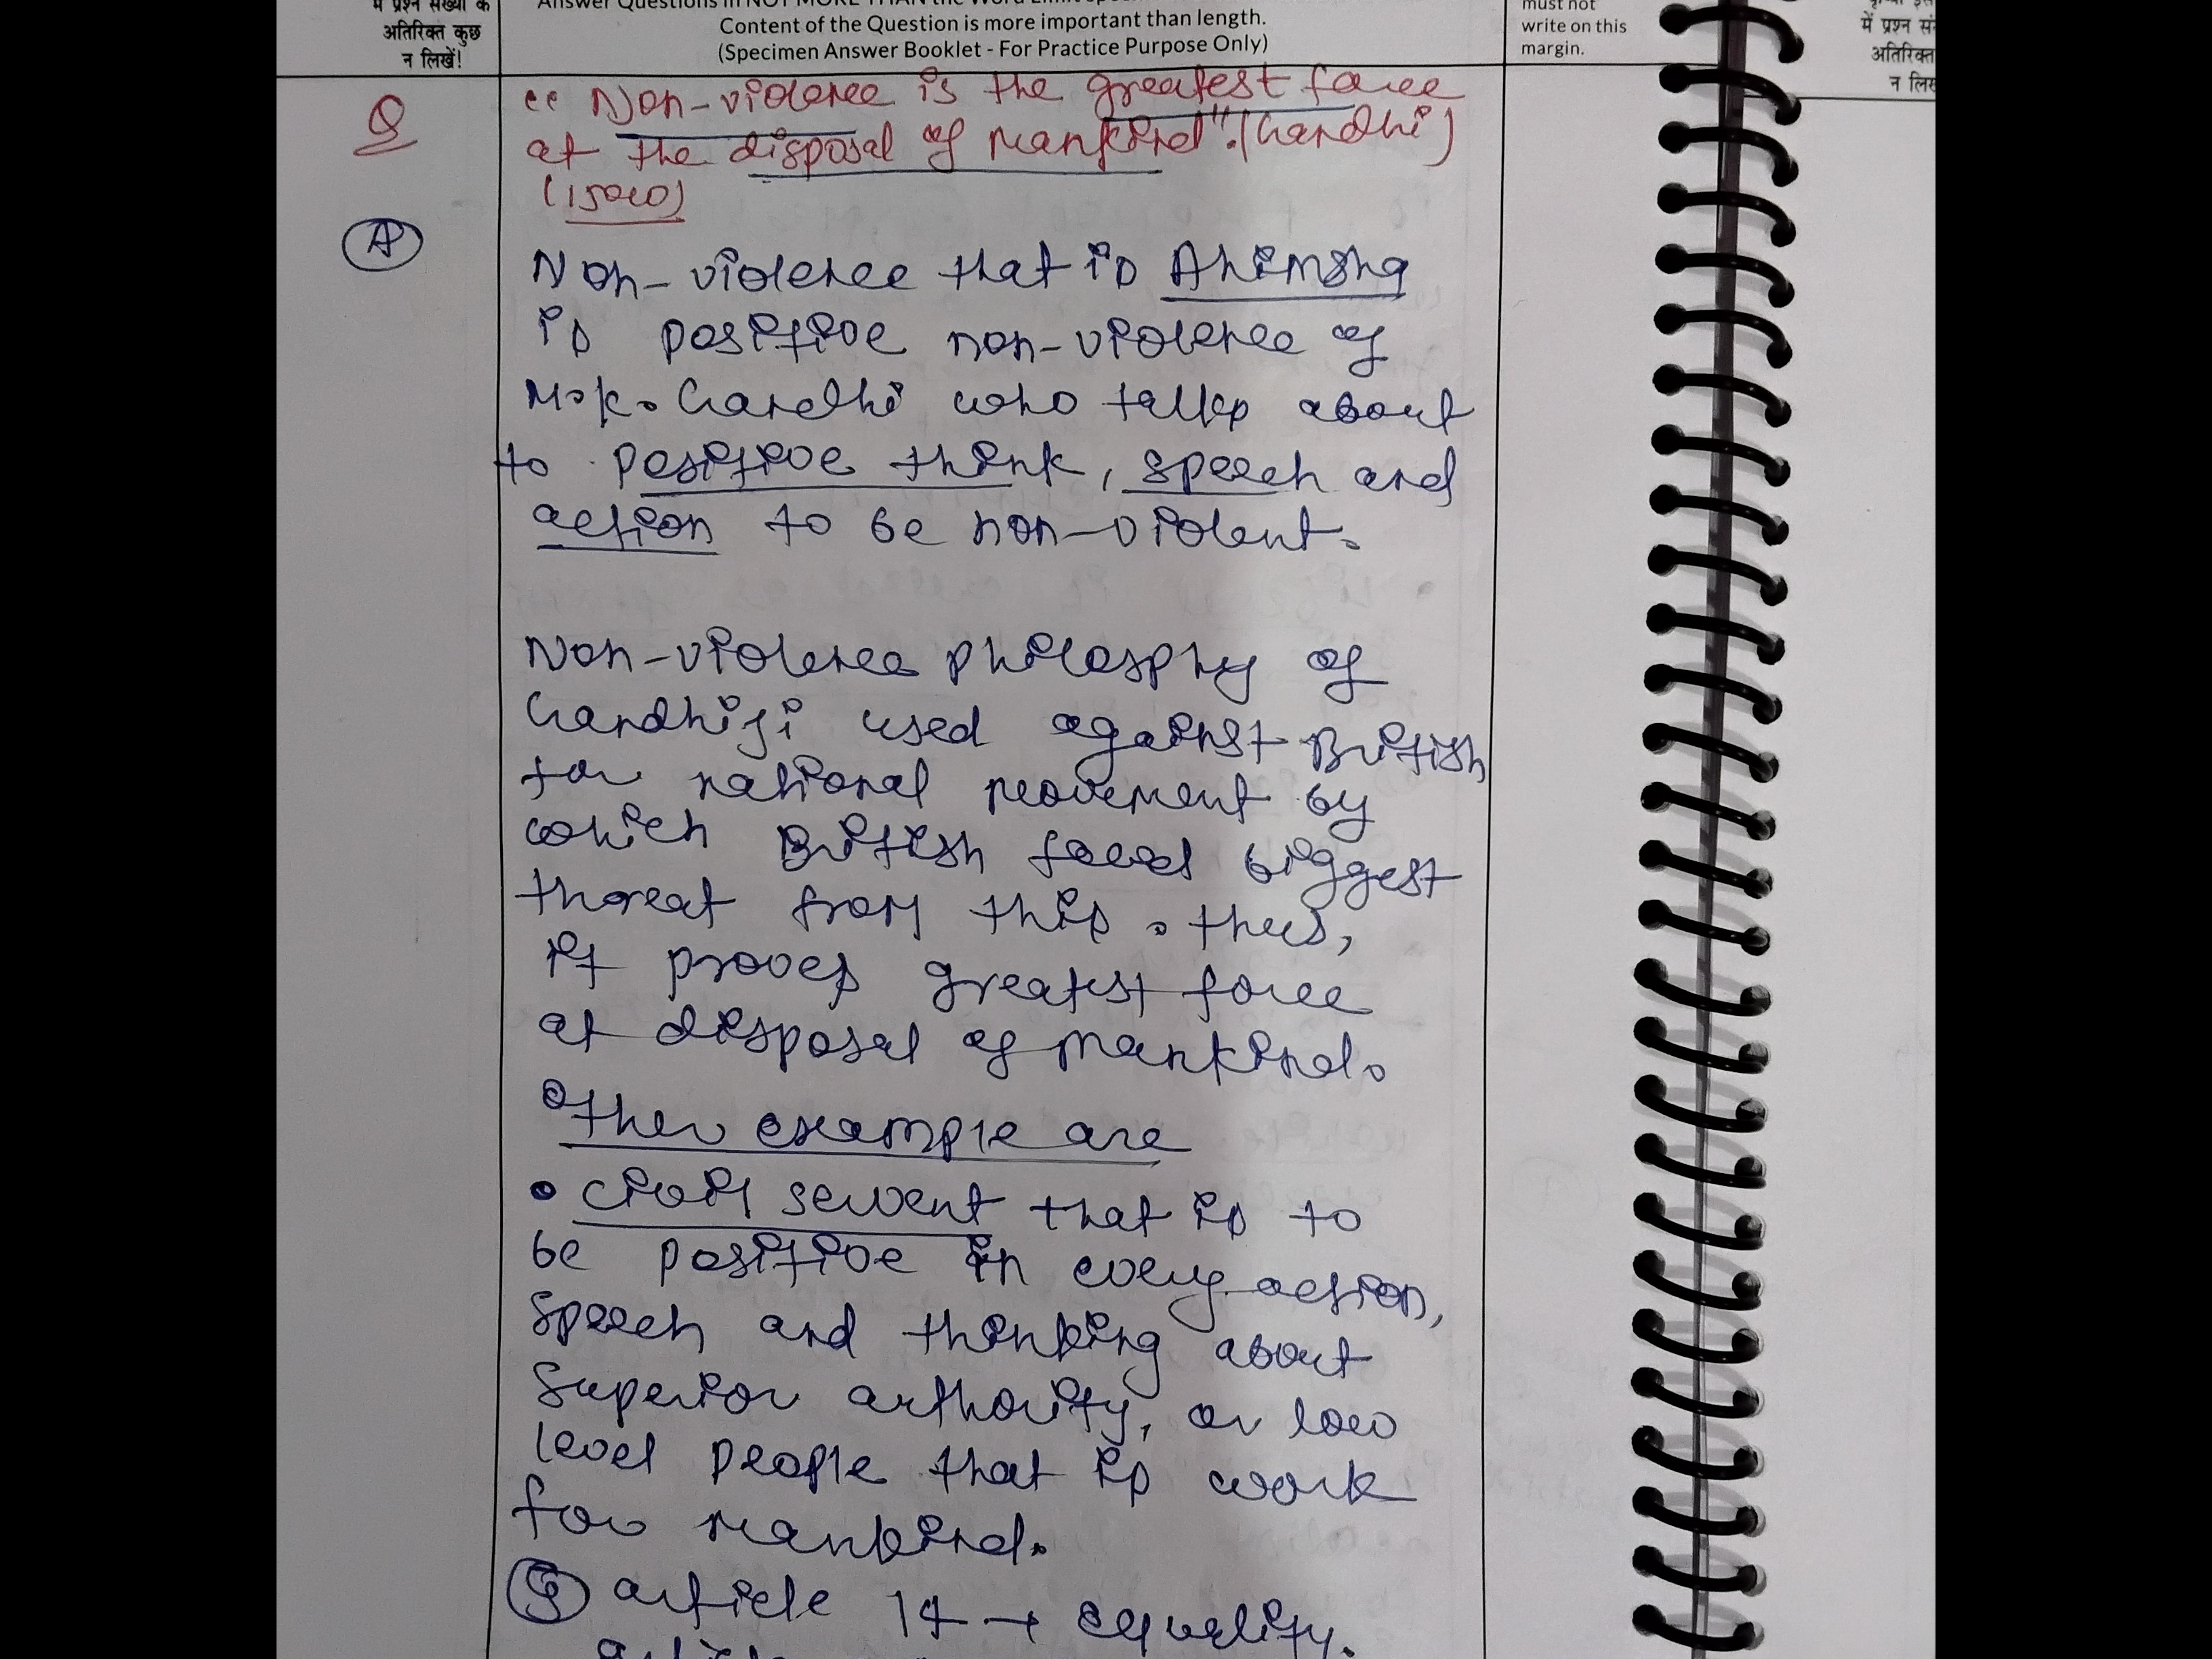 में प्रश्न संख्या के
अतिरिक्त कुछ
न लिखें!
Answer Questions in NOT MORE THAN the Word Limit
Content of the Question is more important than length.
(Specimen Answer Booklet - For Practice Purpose Only)
must not
write on this
margin.
में प्रश्न
अतिरिक्त
Q
"Non-violence is the greatest force
at the disposal of mankind". (Gandhi)
A
Non-violence that is Ahimsha
is positive non-violence of
M.K. Gandhi who talks about
to positive think, speech and
action to be non-violent.
Non-violence philosphy of
Gandhiji used against British
for national movement by
which British faced biggest
threat from this. thus,
it proves greatest force
at disposal of mankind.
Other example are
• Civil servent that is to
be positive in every action,
speech and thinking about
superior authority, or low
level people that is work
for mankind.
article 14 → equality.